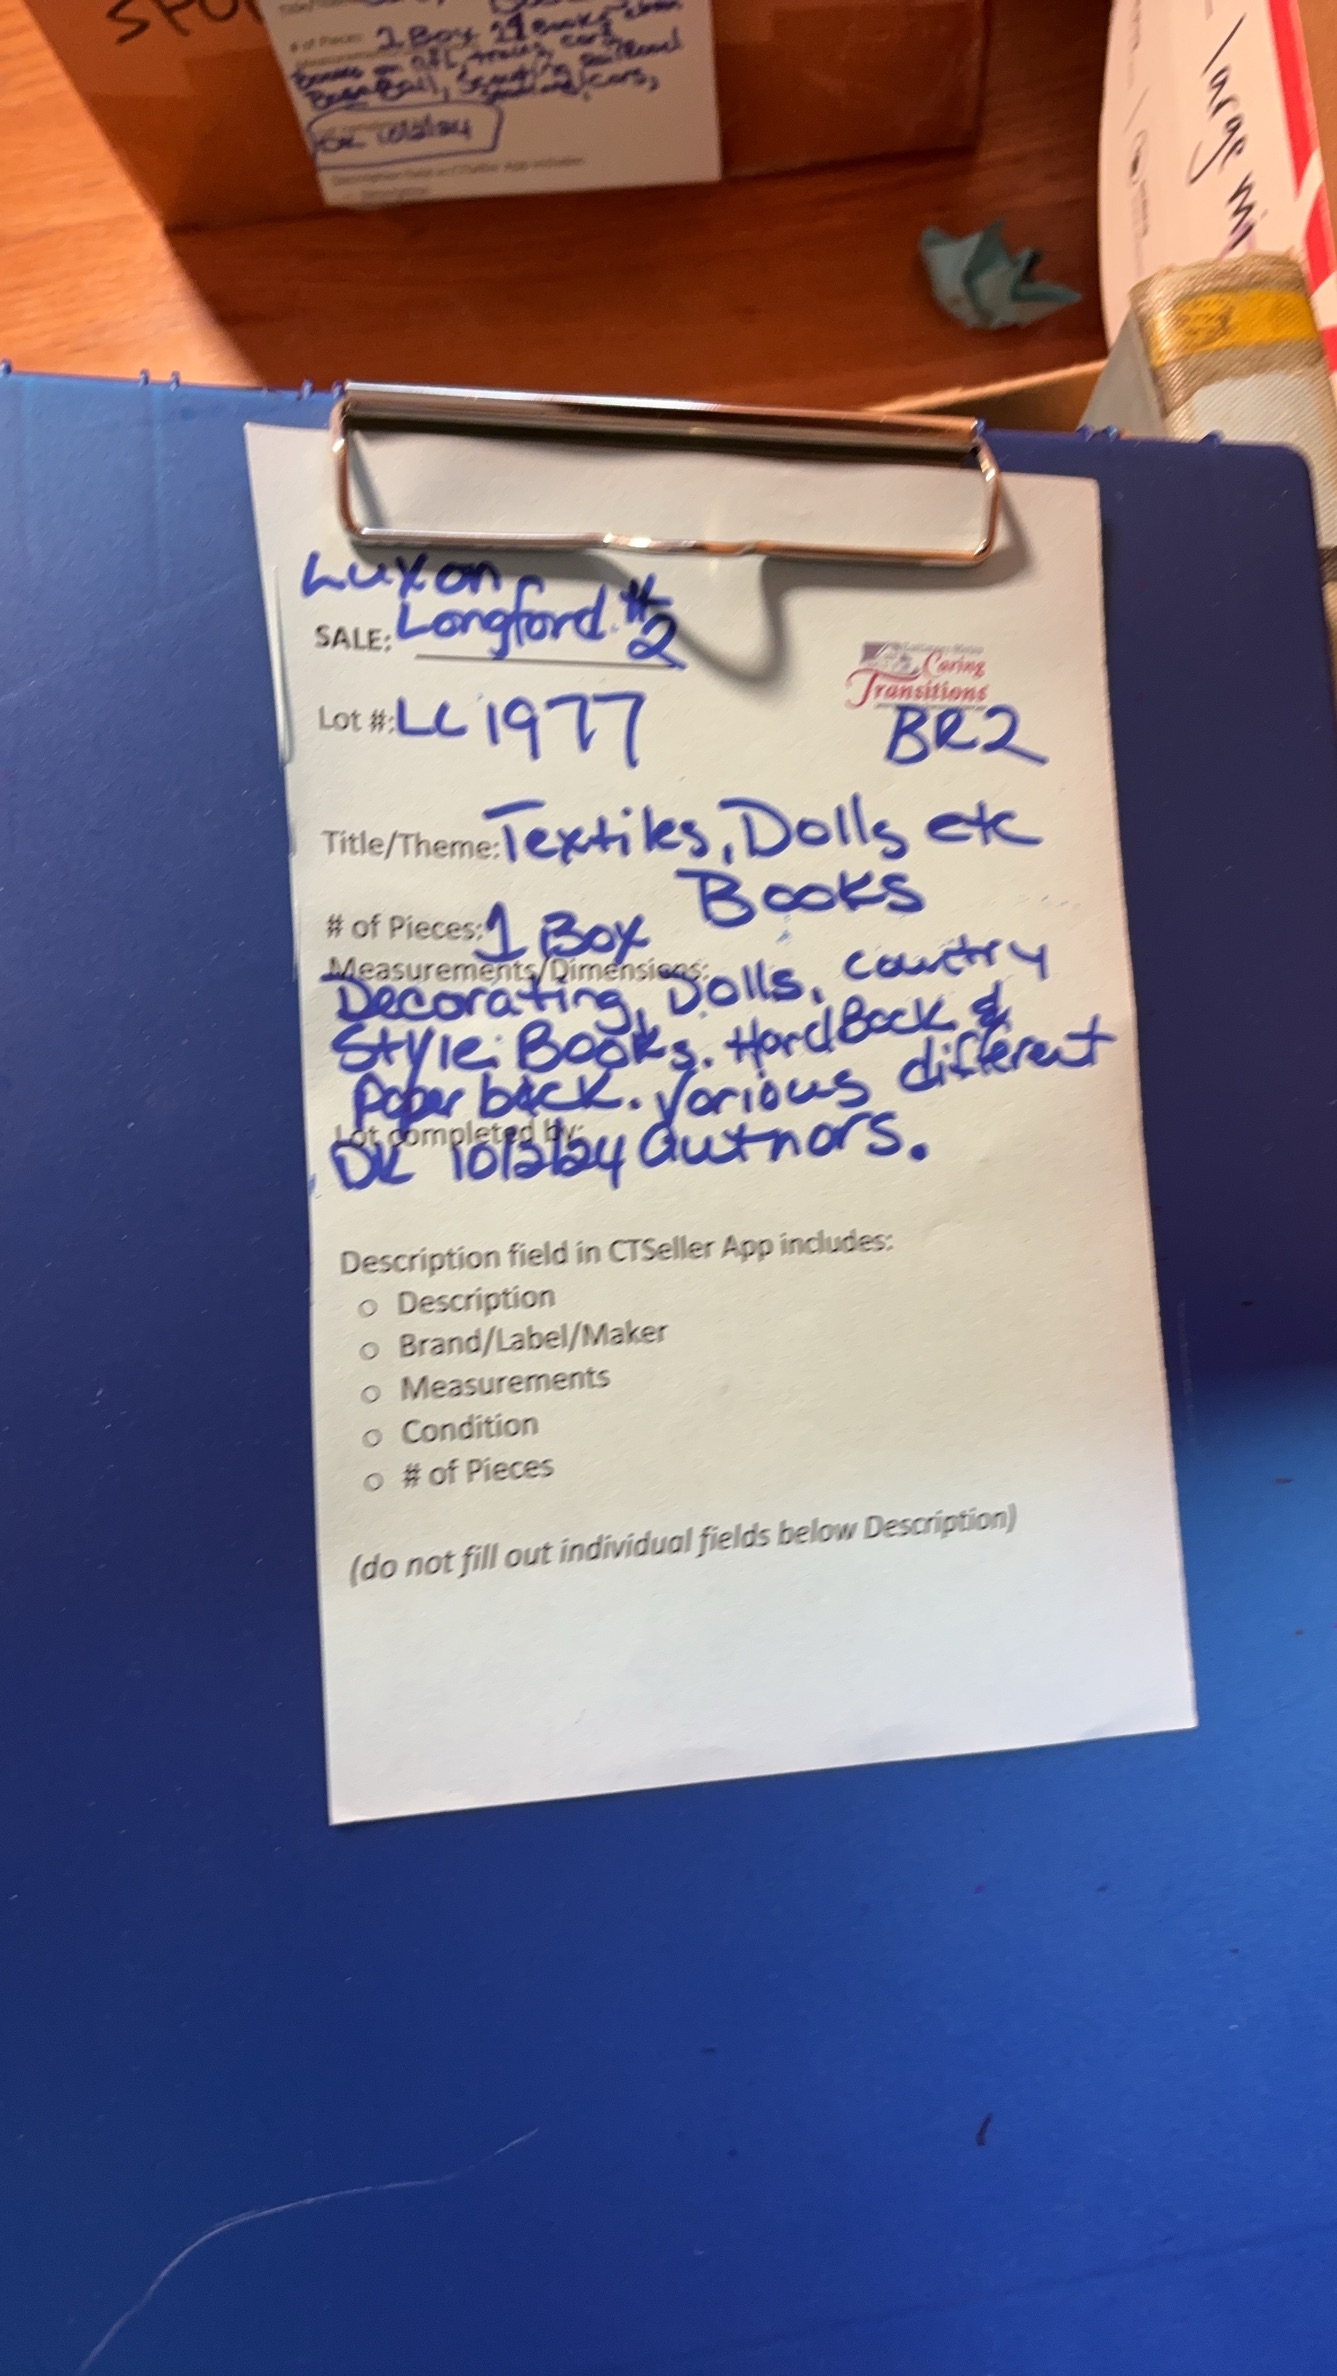 # of Pieces: 1 Box 29 Books
BaseBall, Scouting, Railroad
cars,
DK 10/2/24
Description field in CTSeller App includes:
Description
large
Luxon
SALE: Longford #2
Caring
Transitions
Lot #: LC 1977
BR2
Title/Theme: Textiles, Dolls etc
Books
# of Pieces: 1 Box
Measurements/Dimensions:
Decorating, Dolls, Country
Style Books. HardBack &
Paper back. Various different
Lot completed by:
DK 10/2/24 authors.
Description field in CTSeller App includes:
o Description
o Brand/Label/Maker
o Measurements
o Condition
o # of Pieces
(do not fill out individual fields below Description)